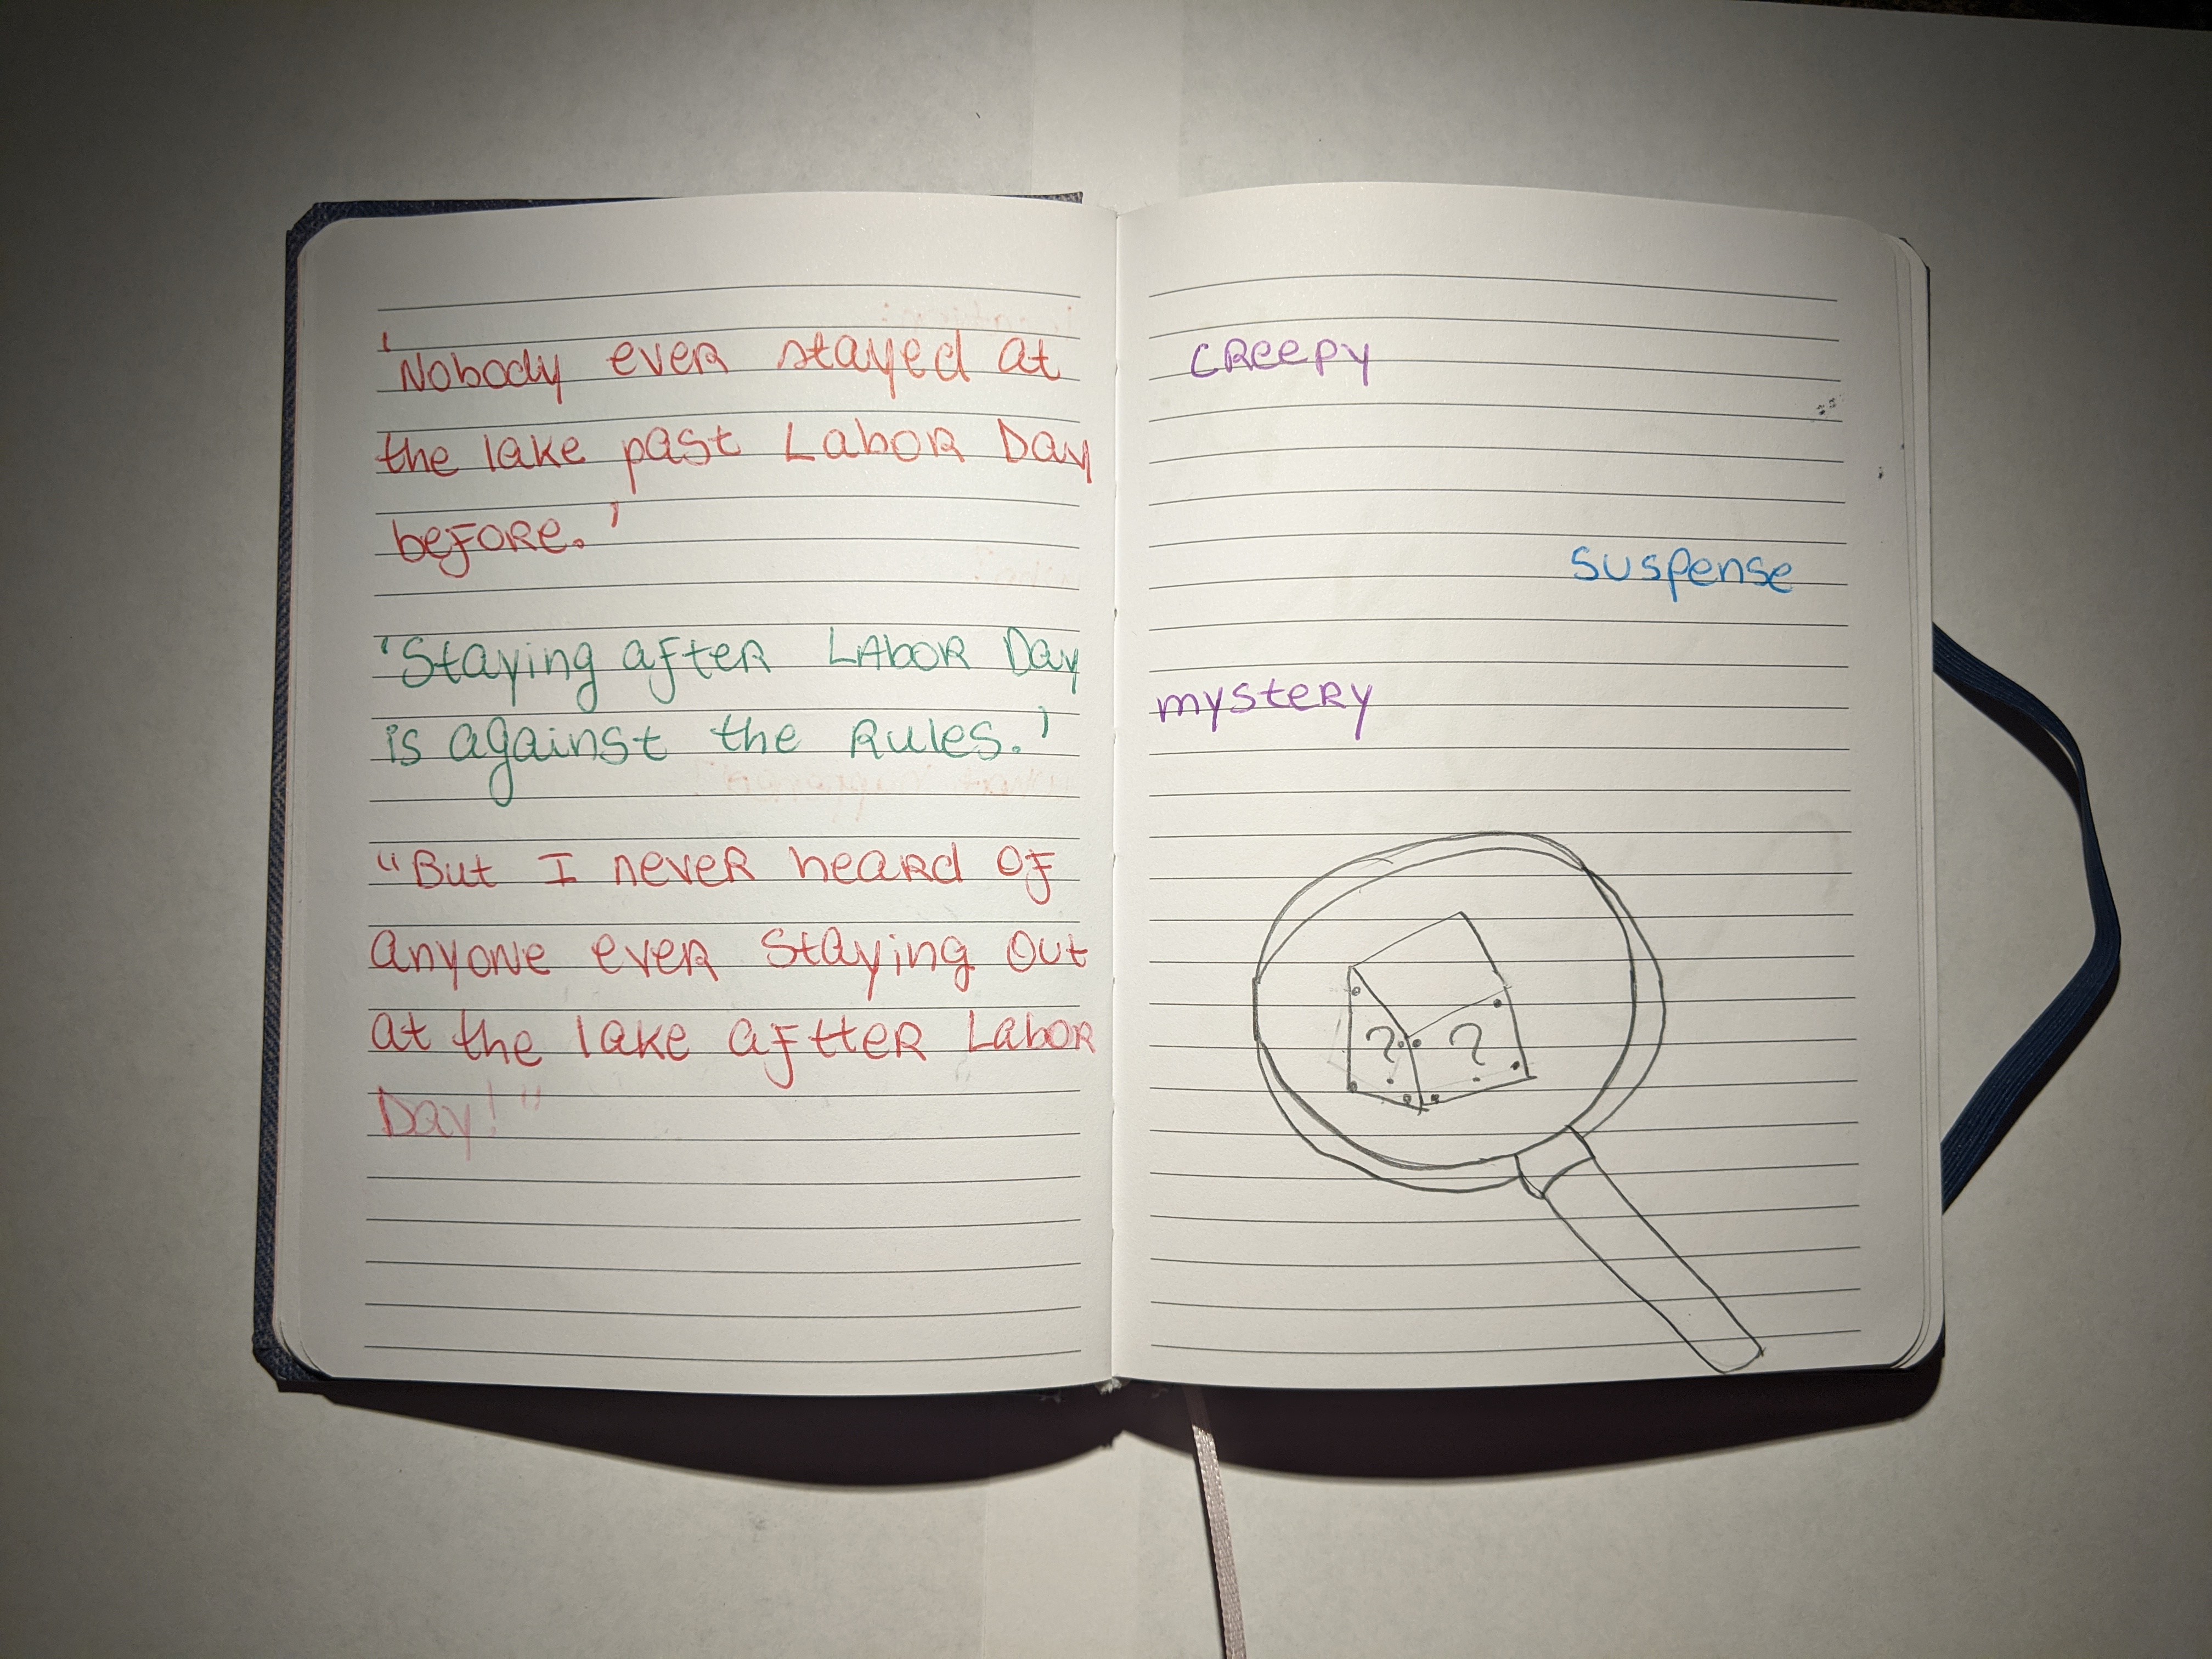 'Nobody ever stayed at
the lake past Labor Day
before.'
'Staying after LAbOR Day
is against the Rules.'
"But I never heard of
anyone ever staying out
at the lake aftter Labor
Day!"
creepy
suspense
mystery
? ?